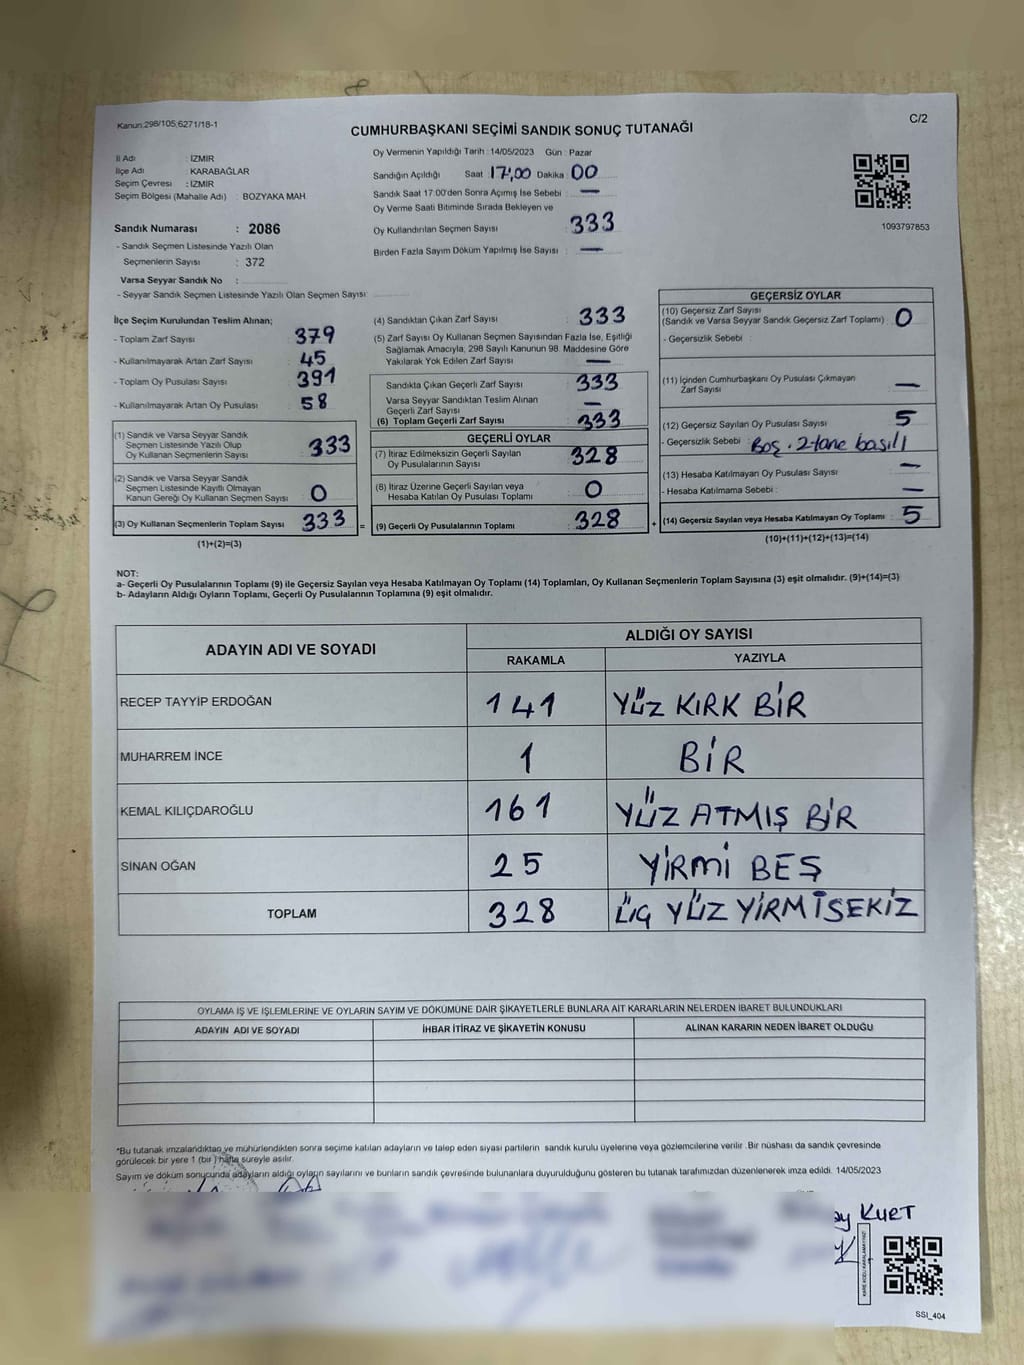 Kanun:298/105,6271/18-1
C/2
CUMHURBAŞKANI SEÇİMİ SANDIK SONUÇ TUTANAĞI
İl Adı : İZMİR
İlçe Adı : KARABAĞLAR
Seçim Çevresi : İZMİR
Seçim Bölgesi (Mahalle Adı) : BOZYAKA MAH
Sandık Numarası : 2086
- Sandık Seçmen Listesinde Yazılı Olan
Seçmenlerin Sayısı : 372
Varsa Seyyar Sandık No :
- Seyyar Sandık Seçmen Listesinde Yazılı Olan Seçmen Sayısı:
Oy Vermenin Yapıldığı Tarih :14/05/2023 Gün : Pazar
Sandığın Açıldığı Saat 17:00 Dakika 00
Sandık Saat 17:00'den Sonra Açımış İse Sebebi : —
Oy Verme Saati Bitiminde Sırada Bekleyen ve
Oy Kullandırılan Seçmen Sayısı : 333
Birden Fazla Sayım Döküm Yapılmış İse Sayısı : —
1093797853
İlçe Seçim Kurulundan Teslim Alınan;
- Toplam Zarf Sayısı : 379
- Kullanılmayarak Artan Zarf Sayısı : 45
- Toplam Oy Pusulası Sayısı : 391
- Kullanılmayarak Artan Oy Pusulası : 58
(1) Sandık ve Varsa Seyyar Sandık
Seçmen Listesinde Yazılı Olup
Oy Kullanan Seçmenlerin Sayısı : 333
(2) Sandık ve Varsa Seyyar Sandık
Seçmen Listesinde Kayıtlı Olmayan
Kanun Gereği Oy Kullanan Seçmen Sayısı : 0
(3) Oy Kullanan Seçmenlerin Toplam Sayısı : 333 =
(1)+(2)=(3)
(4) Sandıktan Çıkan Zarf Sayısı : 333
(5) Zarf Sayısı Oy Kullanan Seçmen Sayısından Fazla İse, Eşitliği
Sağlamak Amacıyla, 298 Sayılı Kanunun 98. Maddesine Göre
Yakılarak Yok Edilen Zarf Sayısı : —
Sandıkta Çıkan Geçerli Zarf Sayısı : 333
Varsa Seyyar Sandıktan Teslim Alınan
Geçerli Zarf Sayısı : —
(6) Toplam Geçerli Zarf Sayısı : 333
GEÇERLİ OYLAR
(7) İtiraz Edilmeksizin Geçerli Sayılan
Oy Pusulalarının Sayısı : 328
(8) İtiraz Üzerine Geçerli Sayılan veya
Hesaba Katılan Oy Pusulası Toplamı : 0
(9) Geçerli Oy Pusulalarının Toplamı : 328 +
GEÇERSİZ OYLAR
(10) Geçersiz Zarf Sayısı
(Sandık ve Varsa Seyyar Sandık Geçersiz Zarf Toplamı) : 0
- Geçersizlik Sebebi :
(11) İçinden Cumhurbaşkanı Oy Pusulası Çıkmayan
Zarf Sayısı : —
(12) Geçersiz Sayılan Oy Pusulası Sayısı : 5
- Geçersizlik Sebebi : Boş . 2 tane basılı
(13) Hesaba Katılmayan Oy Pusulası Sayısı : —
- Hesaba Katılmama Sebebi : —
(14) Geçersiz Sayılan veya Hesaba Katılmayan Oy Toplamı : 5
(10)+(11)+(12)+(13)=(14)
NOT:
a- Geçerli Oy Pusulalarının Toplamı (9) ile Geçersiz Sayılan veya Hesaba Katılmayan Oy Toplamı (14) Toplamları, Oy Kullanan Seçmenlerin Toplam Sayısına (3) eşit olmalıdır. (9)+(14)=(3)
b- Adayların Aldığı Oyların Toplamı, Geçerli Oy Pusulalarının Toplamına (9) eşit olmalıdır.
ADAYIN ADI VE SOYADI
ALDIĞI OY SAYISI
RAKAMLA YAZIYLA
RECEP TAYYİP ERDOĞAN 141 YÜZ KIRK BİR
MUHARREM İNCE 1 BİR
KEMAL KILIÇDAROĞLU 161 YÜZ ATMIŞ BİR
SİNAN OĞAN 25 YİRMİ BEŞ
TOPLAM 328 ÜÇ YÜZ YİRMİSEKİZ
OYLAMA İŞ VE İŞLEMLERİNE VE OYLARIN SAYIM VE DÖKÜMÜNE DAİR ŞİKAYETLERLE BUNLARA AİT KARARLARIN NELERDEN İBARET BULUNDUKLARI
ADAYIN ADI VE SOYADI İHBAR İTİRAZ VE ŞİKAYETİN KONUSU ALINAN KARARIN NEDEN İBARET OLDUĞU
*Bu tutanak imzalandıktan ve mühürlendikten sonra seçime katılan adayların ve talep eden siyasi partilerin sandık kurulu üyelerine veya gözlemcilerine verilir .Bir nüshası da sandık çevresinde
görülecek bir yere 1 (bir ) hafta süreyle asılır.
Sayım ve döküm sonucunda adayların aldığı oyların sayılarını ve bunların sandık çevresinde bulunanlara duyurulduğunu gösteren bu tutanak tarafımızdan düzenlenerek imza edildi. 14/05/2023
KURT
SSI_404